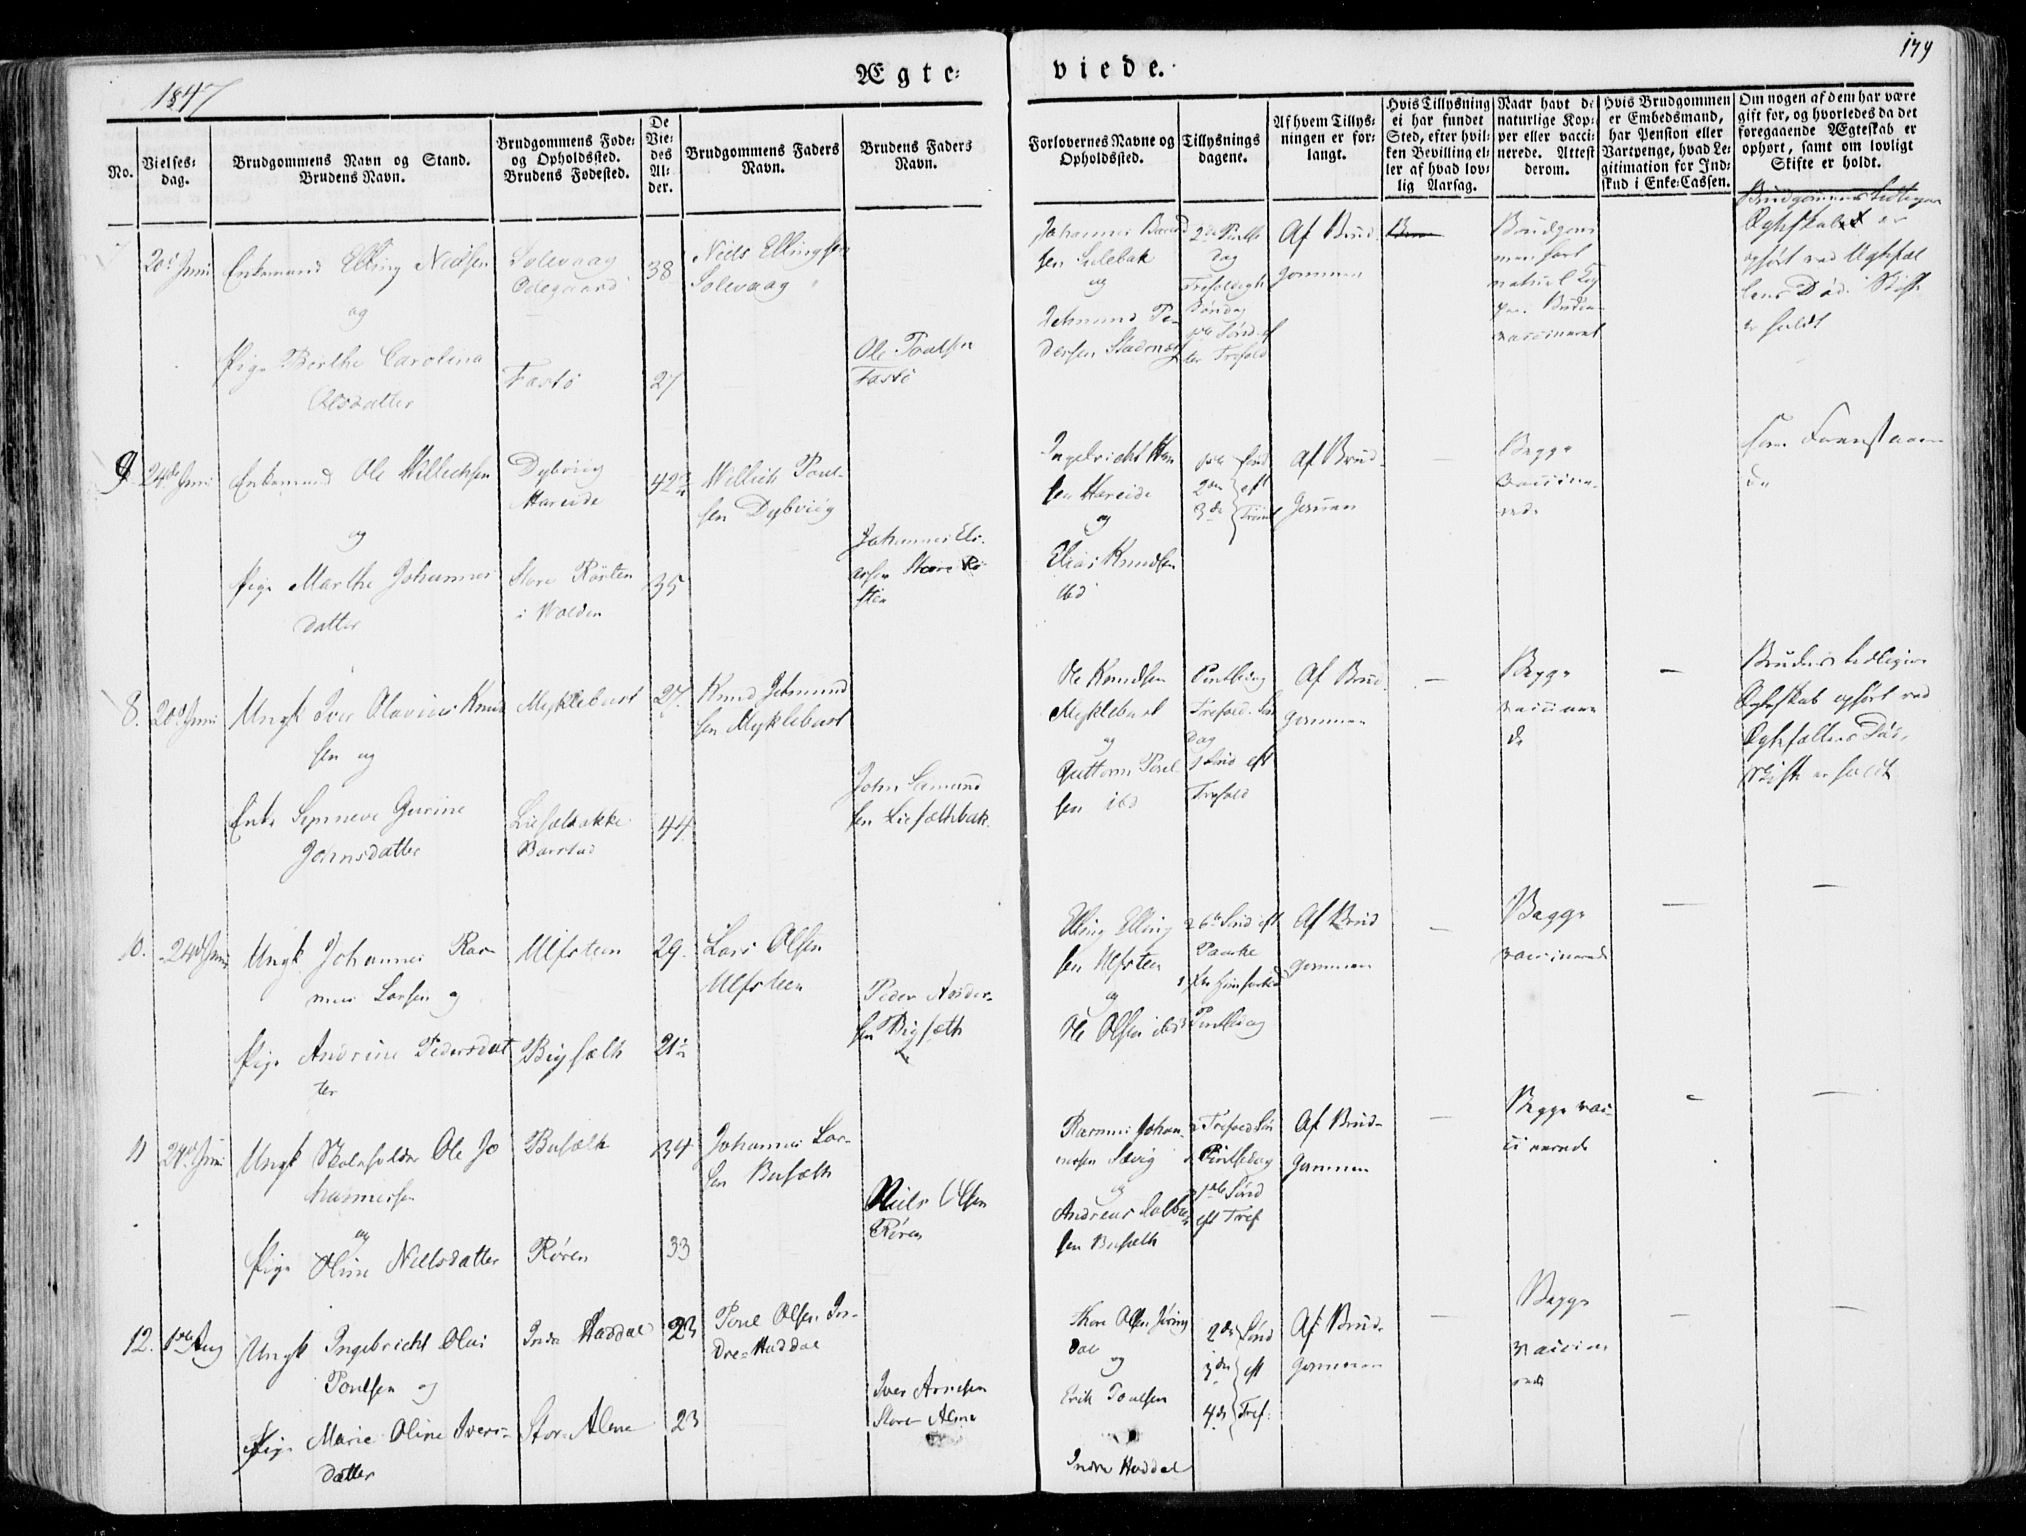 1847
Ægte-
viede.
179
No.
Vielses-
dag.
Brudgommens Navn og Stand.
Brudens Navn.
Brudgommens Føde-
og Opholdssted.
Brudens Fødested.
De
Vie-
des
Al-
der.
Brudgommens Faders
Navn.
Brudens Faders
Navn.
Forlovernes Navne og
Opholdssted.
Tillysnings
dagene.
Af hvem Tillys-
ningen er for-
langt.
Hvis Tillysning
ei har fundet
Sted, efter hvil-
ken Bevilling el-
ler af hvad lov-
lig Aarsag.
Naar havt de
naturlige Kop-
per eller vacci-
nerede. Attest
derom.
Hvis Brudgommen
er Embedsmand,
har Pension eller
Vartpenge, hvad Le-
gitimation for Ind-
skud i Enke-Cassen.
Om nogen af dem har være
gift før, og hvorledes da det
foregaaende Ægteskab er
ophørt, samt om lovligt
Skifte er holdt.
7
20de Juni
Enkemand Elling Nielsen
og
Pige Berthe Carolina
Olsdatter
Solevaag
Ødegaard
Fastø
38
27
Niels Ellingsen
Solevaag
Ole Poulsen
Fastø
Johannes
sen Sulebak
og
Jetmund Pe-
dersen
2den Pintse
dag
Trefoldigh
Søndag
1ste Sønd. ef
ter Trefold
Af Brud-
gommen
Brudgom
men havt
naturl. Kop
per. Bruden
vaccineret
Brudgommens tidligere
Ægteskab er
ophørt ved Ægtefæl
lens Død. Skifte
er holdt
9
24de Juni
Enkemand Ole Willechsen
og
Pige Marthe Johannes
datter
Dybviig
Hareide
Store Røsten
i Wolden
42
35
Willich Poul-
sen Dybviig
Johannes Eli-
assen Store Rø
sten
Ingebricht Han
sen Hareide
og
Elias Knudsen
ibd
1ste Sønd
2den eft
3de Trinit
Af Brud-
gommen
—
Begge
vaccine-
rede
som Foranstaaen
de
8.
20de Juni
Ungk Iver Olavius Knud
sen og
Enke Synneve Gurine
Johnsdatter
Myklebust
Liesælbakke
Barstad
27
44
Knud Jetmund
sen Myklebust
John Samund
sen Liesæthbak.
Ole Knudsen
Myklebust
og
Guttorm Poul
sen ibd
Pintsedag
Trefold. Søn
dag
1 Sønd eft
Trefold
Af Brud-
gommen
—
Begge
vaccinere
de
—
Brudens tidligere
Ægteskab ophørt ved
Ægtefællens Død,
Skifte er holdt
10.
24de Juni
Ungk Johannes Ras-
mus Larsen og
Pige Andrine Pedersdat
ter
Ulfsteen
Bigsæth
29.
21½
Lars Olsen
Ulfsteen
Peder Ander-
sen Bigsæth
Elling Elling
sen Ulfsteen
og
Ole Olsen ibd
6te Sønd eft
Paaske
Pintsedag
Af Brud
gommen
—
Begge
vaccinerede
—
—
11
24de Juni
Ungk Ole Jo
hannessen
og
Pige Oline Nielsdatter
Busæth
Røren
34
33
Johannes Lar-
sen Busæth
Niels Olsen
Røren
Rasmus Johan-
nessen Sævig
og
Andreas
sen Busæth
Trefold Søn
Pintsedag
1ste Sønd
eft Tref
Af Brud-
gommen
—
Begge vac-
cinerede
—
—
12.
1ste Aug
Ungk Ingebricht Olai
Poulsen og
Pige Marie Oline Ivers-
datter
Indre Haddal
Stor-Alme
23
23
Poul Olsen In-
dre-Haddal
Iver Arnesen
Store Alme
Thore Olsen
dal
og
Erik Poulsen
Indre Haddal
2de Sønd
3de eft
4de Tref:
Af Brud-
gommen
—
Begge
vaccine
rede
—
—